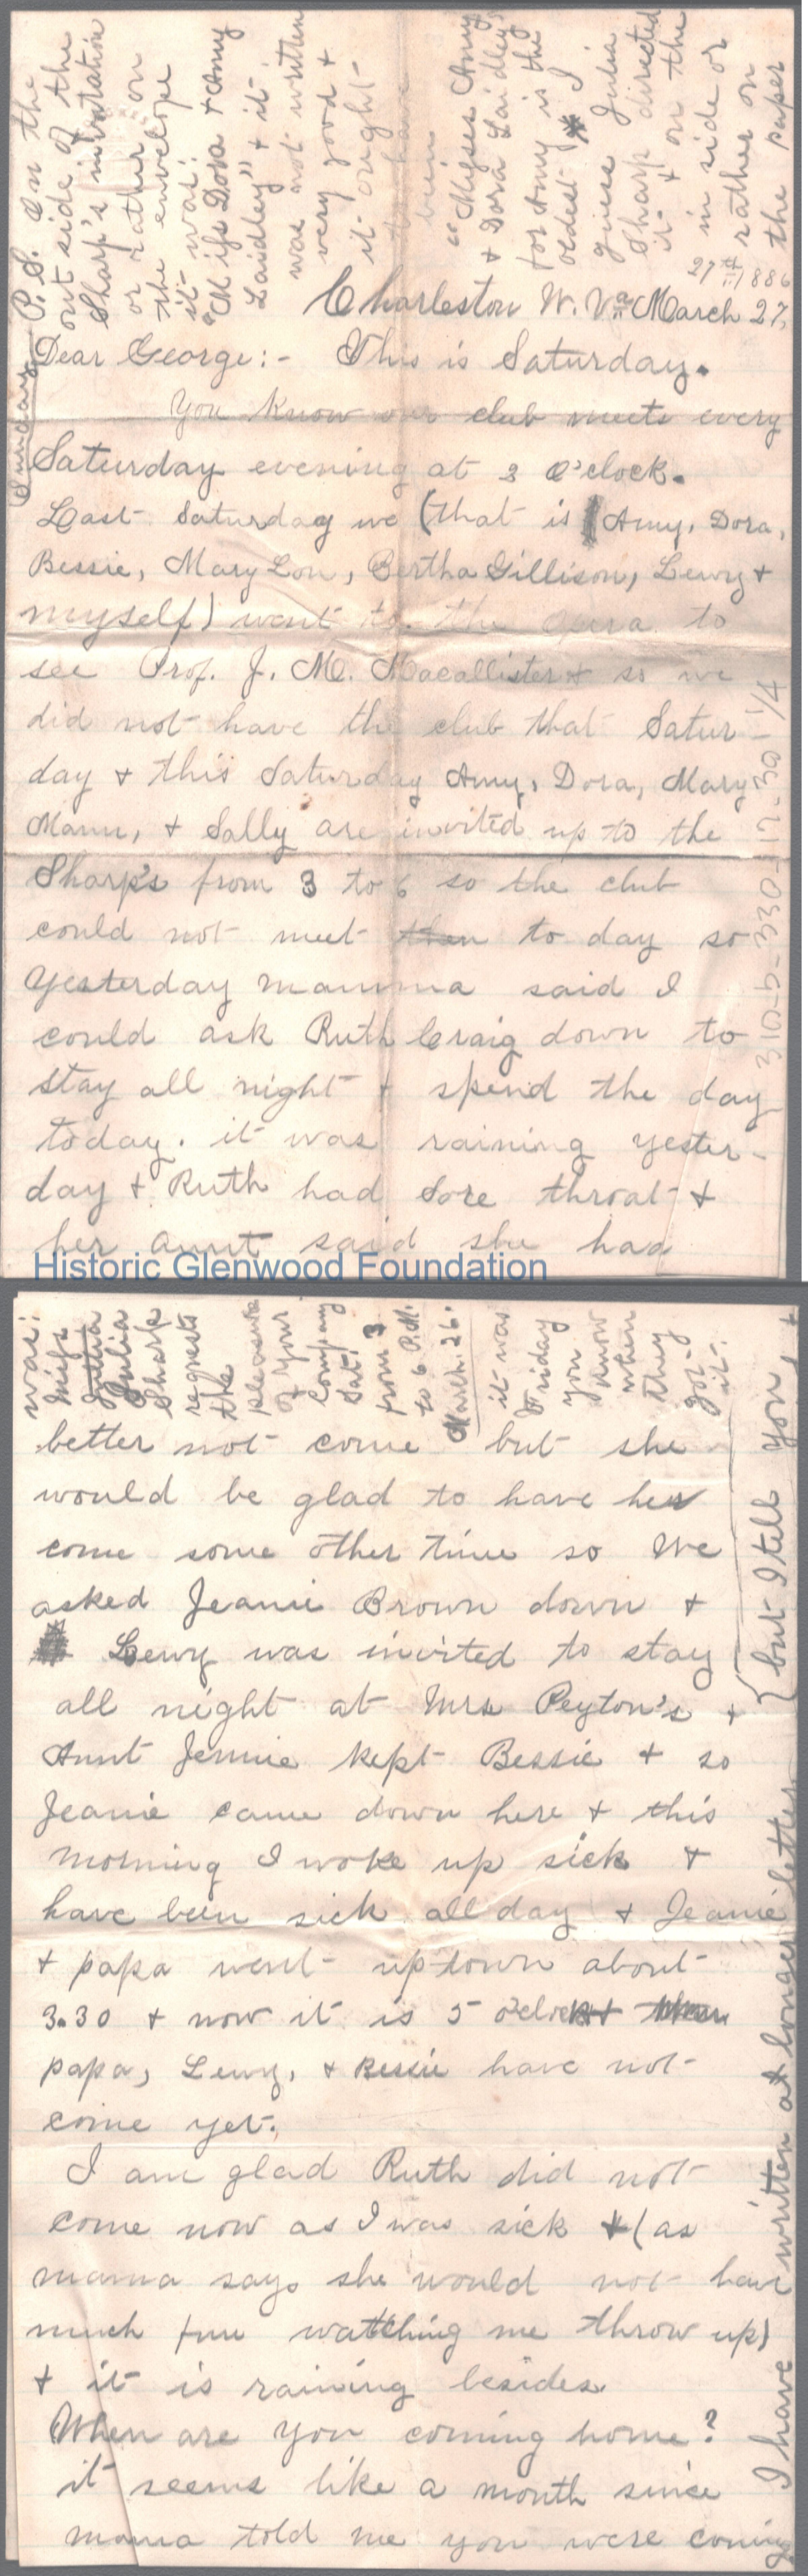 P.S. On the
out side of the
Sharp's invatation
or rather on
the envelope
it was:
"Miss Dora & Amy
Laidley" & it
was not written
very good &
it ought
to have
been
"Misses Amy
& Dora Laidley"
for Amy is the
oldest I
guess Julia
Sharp directed
it & on the
in side or
rather on
the paper
27th 1886
Charleston W. Va March 27,
Sunday
Dear George:- This is Saturday.
You know our club meets every
Saturday evening at 3 O'clock.
Last Saturday we (that is Amy, Dora,
Bessie, Mary Lou, Bertha Gillison, Lewy &
myself) went to the opera to
see Prof. J. M. Macallister & so we
did not have the club that Satur-
day & this Saturday Amy, Dora, Mary
Mann, & Sally are invited up to the
Sharp's from 3 to 6 so the club
could not meet then to day so
yesterday mamma said I
could ask Ruth Craig down to
stay all night & spend the day
today. it was raining yester-
day & Ruth had sore throat &
her Aunt said she had
310-5-330-17-30 1/4
Historic Glenwood Foundation
was:
Miss
Julia
Sharp
requests
the
pleasure
of your
company
Sat.
from 3
to 6 P.M.
March 26.
it was
Friday
you
know
when
they
got
it.
better not come but she
would be glad to have her
come some other time so We
asked Jeanie Brown down &
Lewy was invited to stay
all night at Mrs Peyton's &
Aunt Jennie kept Bessie & so
Jeanie came down here & this
morning I woke up sick &
have been sick all day & Jeanie
& papa went uptown about
3.30 & now it is 5 o'clock
papa, Lewy, & Bessie have not
come yet.
I am glad Ruth did not
come now as I was sick & (as
mama says she would not have
much fun watching me throw up)
& it is raining besides
When are you coming home?
it seems like a month since
mama told me you were coming
I have written a longer letter
{but I tell you,